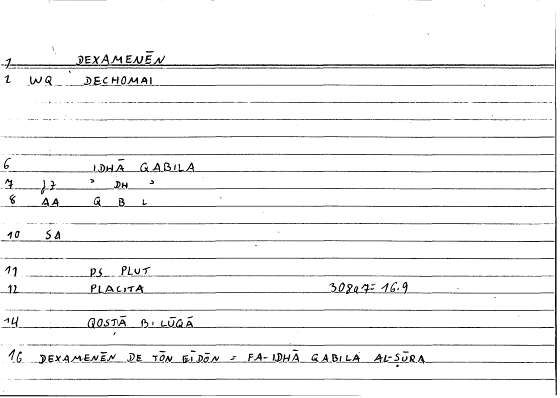 1 DEXAMENĒN
2 WQ DECHOMAI
6 IDHĀ QABILA
7 JZ ' DH '
8 AA Q B L
10 SA
11 PS PLUT
12 PLACITA 308a7= 16.9
14 QOSTĀ B. LŪQĀ
16 DEXAMENĒN DE TŌN EIDŌN = FA-IDHĀ QABILA AL-ṢŪRA